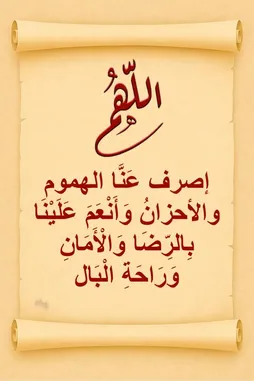 اللَّهُمَّ
إصرف عَنَّا الهموم
والأحزانُ وَأَنْعَمَ عَلَيْنَا
بِالرِّضَا وَالْأَمَانِ
وَرَاحَةِ الْبَال